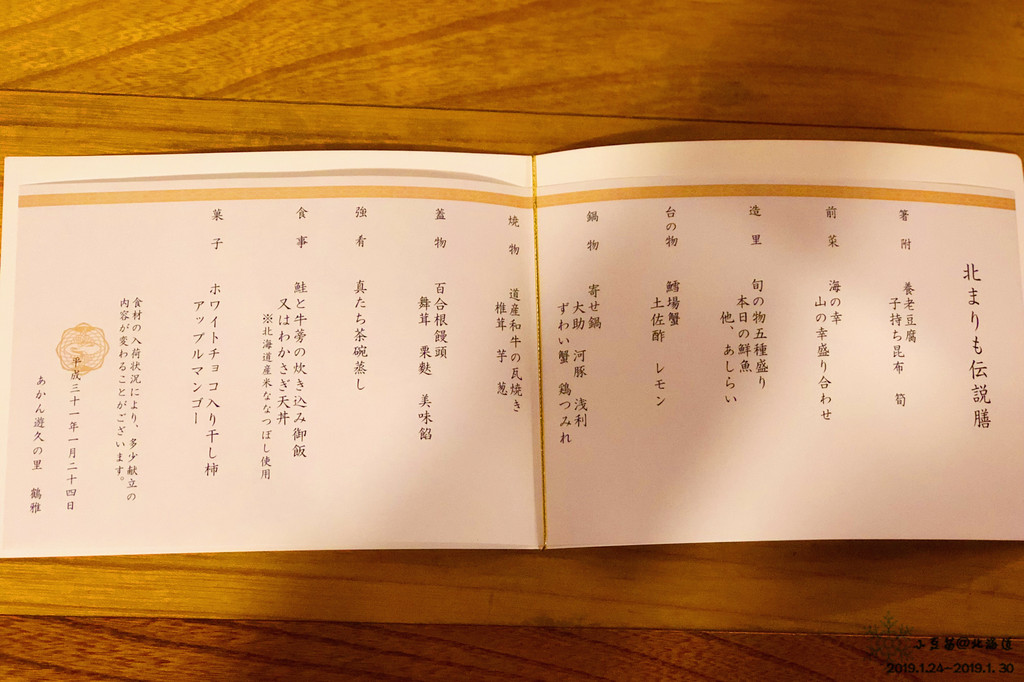 北まりも伝説膳
箸附
養老豆腐
子持ち昆布 筍
前菜
海の幸
山の幸盛り合わせ
造里
旬の物五種盛り
本日の鮮魚
他、あしらい
台の物
鱈場蟹
土佐酢 レモン
鍋物
寄せ鍋
大助 河豚 浅利
ずわい蟹 鶏つみれ
焼物
道産和牛の瓦焼き
椎茸 芋 葱
蓋物
百合根饅頭
舞茸 栗麩 美味餡
強肴
真たち茶碗蒸し
食事
鮭と牛蒡の炊き込み御飯
又はわかさぎ天丼
※北海道産米ななつぼし使用
菓子
ホワイトチョコ入り干し柿
アップルマンゴー
食材の入荷状況により、多少献立の
内容が変わることがございます。
平成三十一年一月二十四日
あかん遊久の里 鶴雅
小豆爸@北海道
2019.1.24-2019.1.30